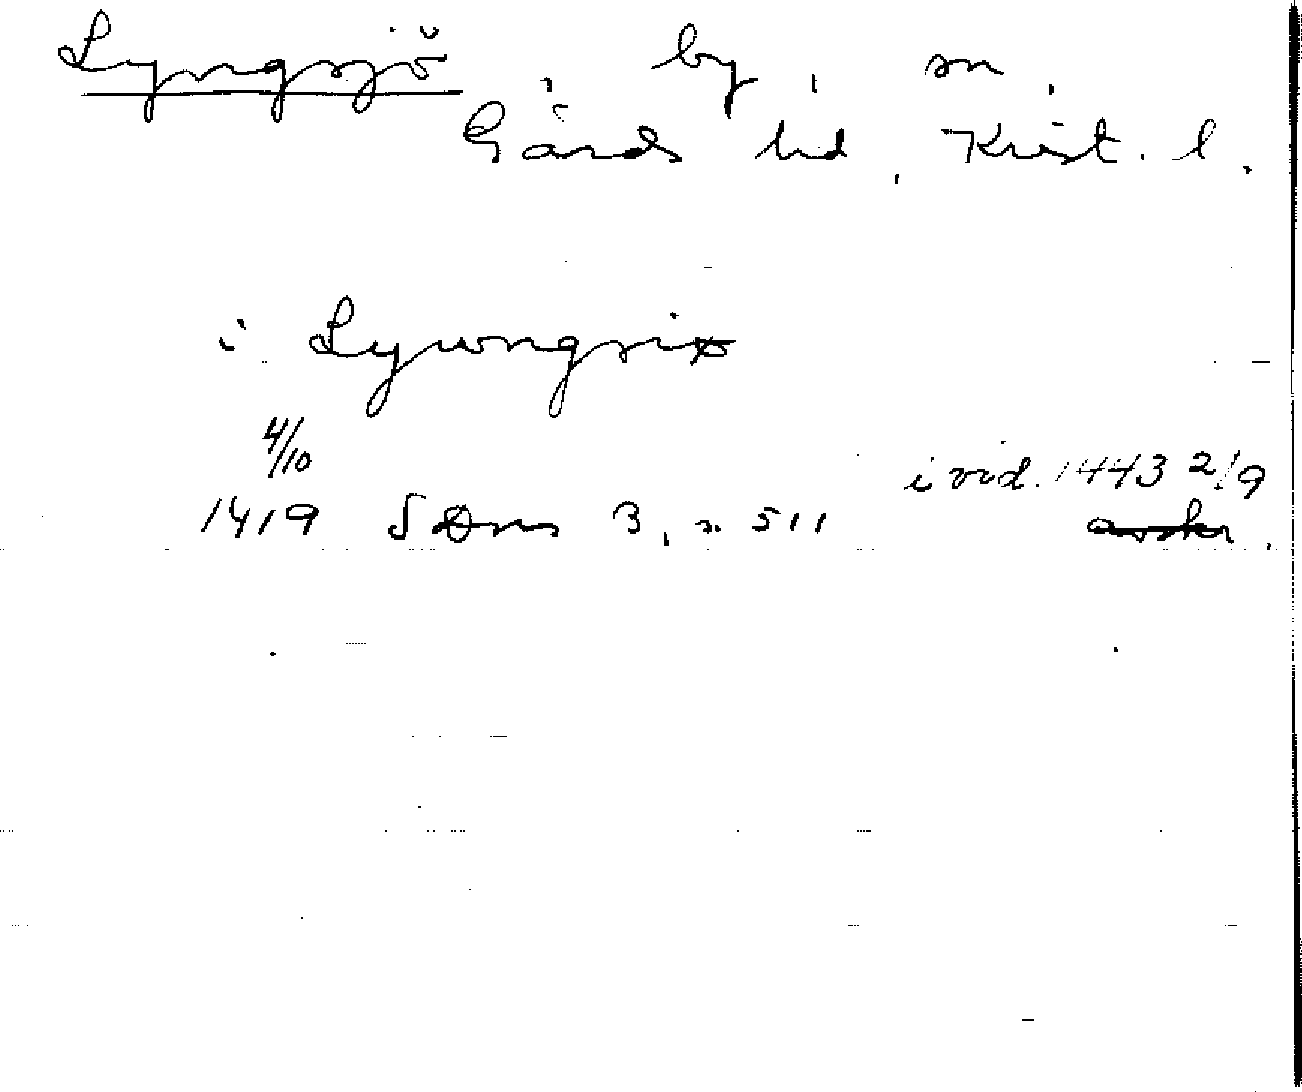 Lyngsjö, by, sn,
Gärds hd, Krist. l.
i Lywngsiø
4/10 i vid. 1443 2/9
1419 SDns 3, n 511